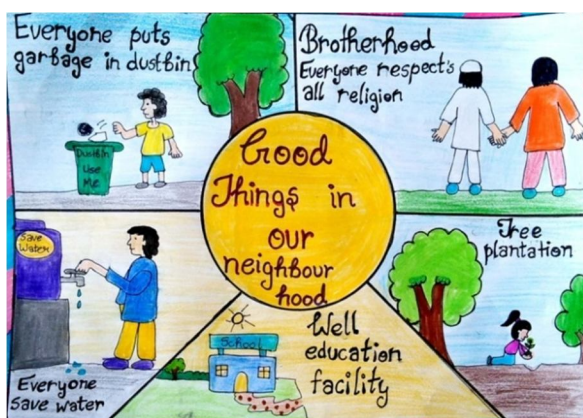 Everyone puts
garbage in dustbin
Dustbin
Use
Me
Brotherhood
Everyone respect's
all religion
Good
Things in
our
neighbour
hood
Save
Water
Everyone
Save water
School
Well
education
facility
Tree
plantation